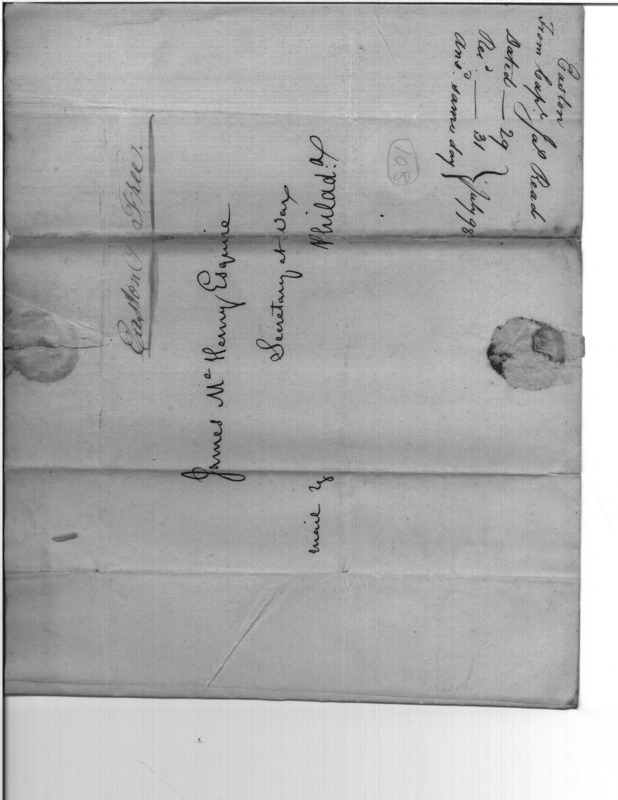 Easton
From Capt Jas Read
Dated — 29
Recd — 31
Ansd. same day } July 98
108
Easton Free.
James McHenry Esquire
Secretary at War
Philada
mail